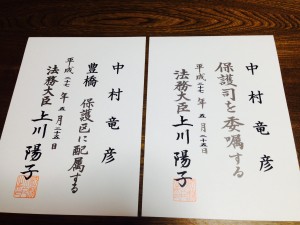 中村竜彦
保護司を委嘱する
平成二十七年五月二十五日
法務大臣上川陽子
中村竜彦
豊橋 保護区に配属する
平成二十七年五月二十五日
法務大臣上川陽子